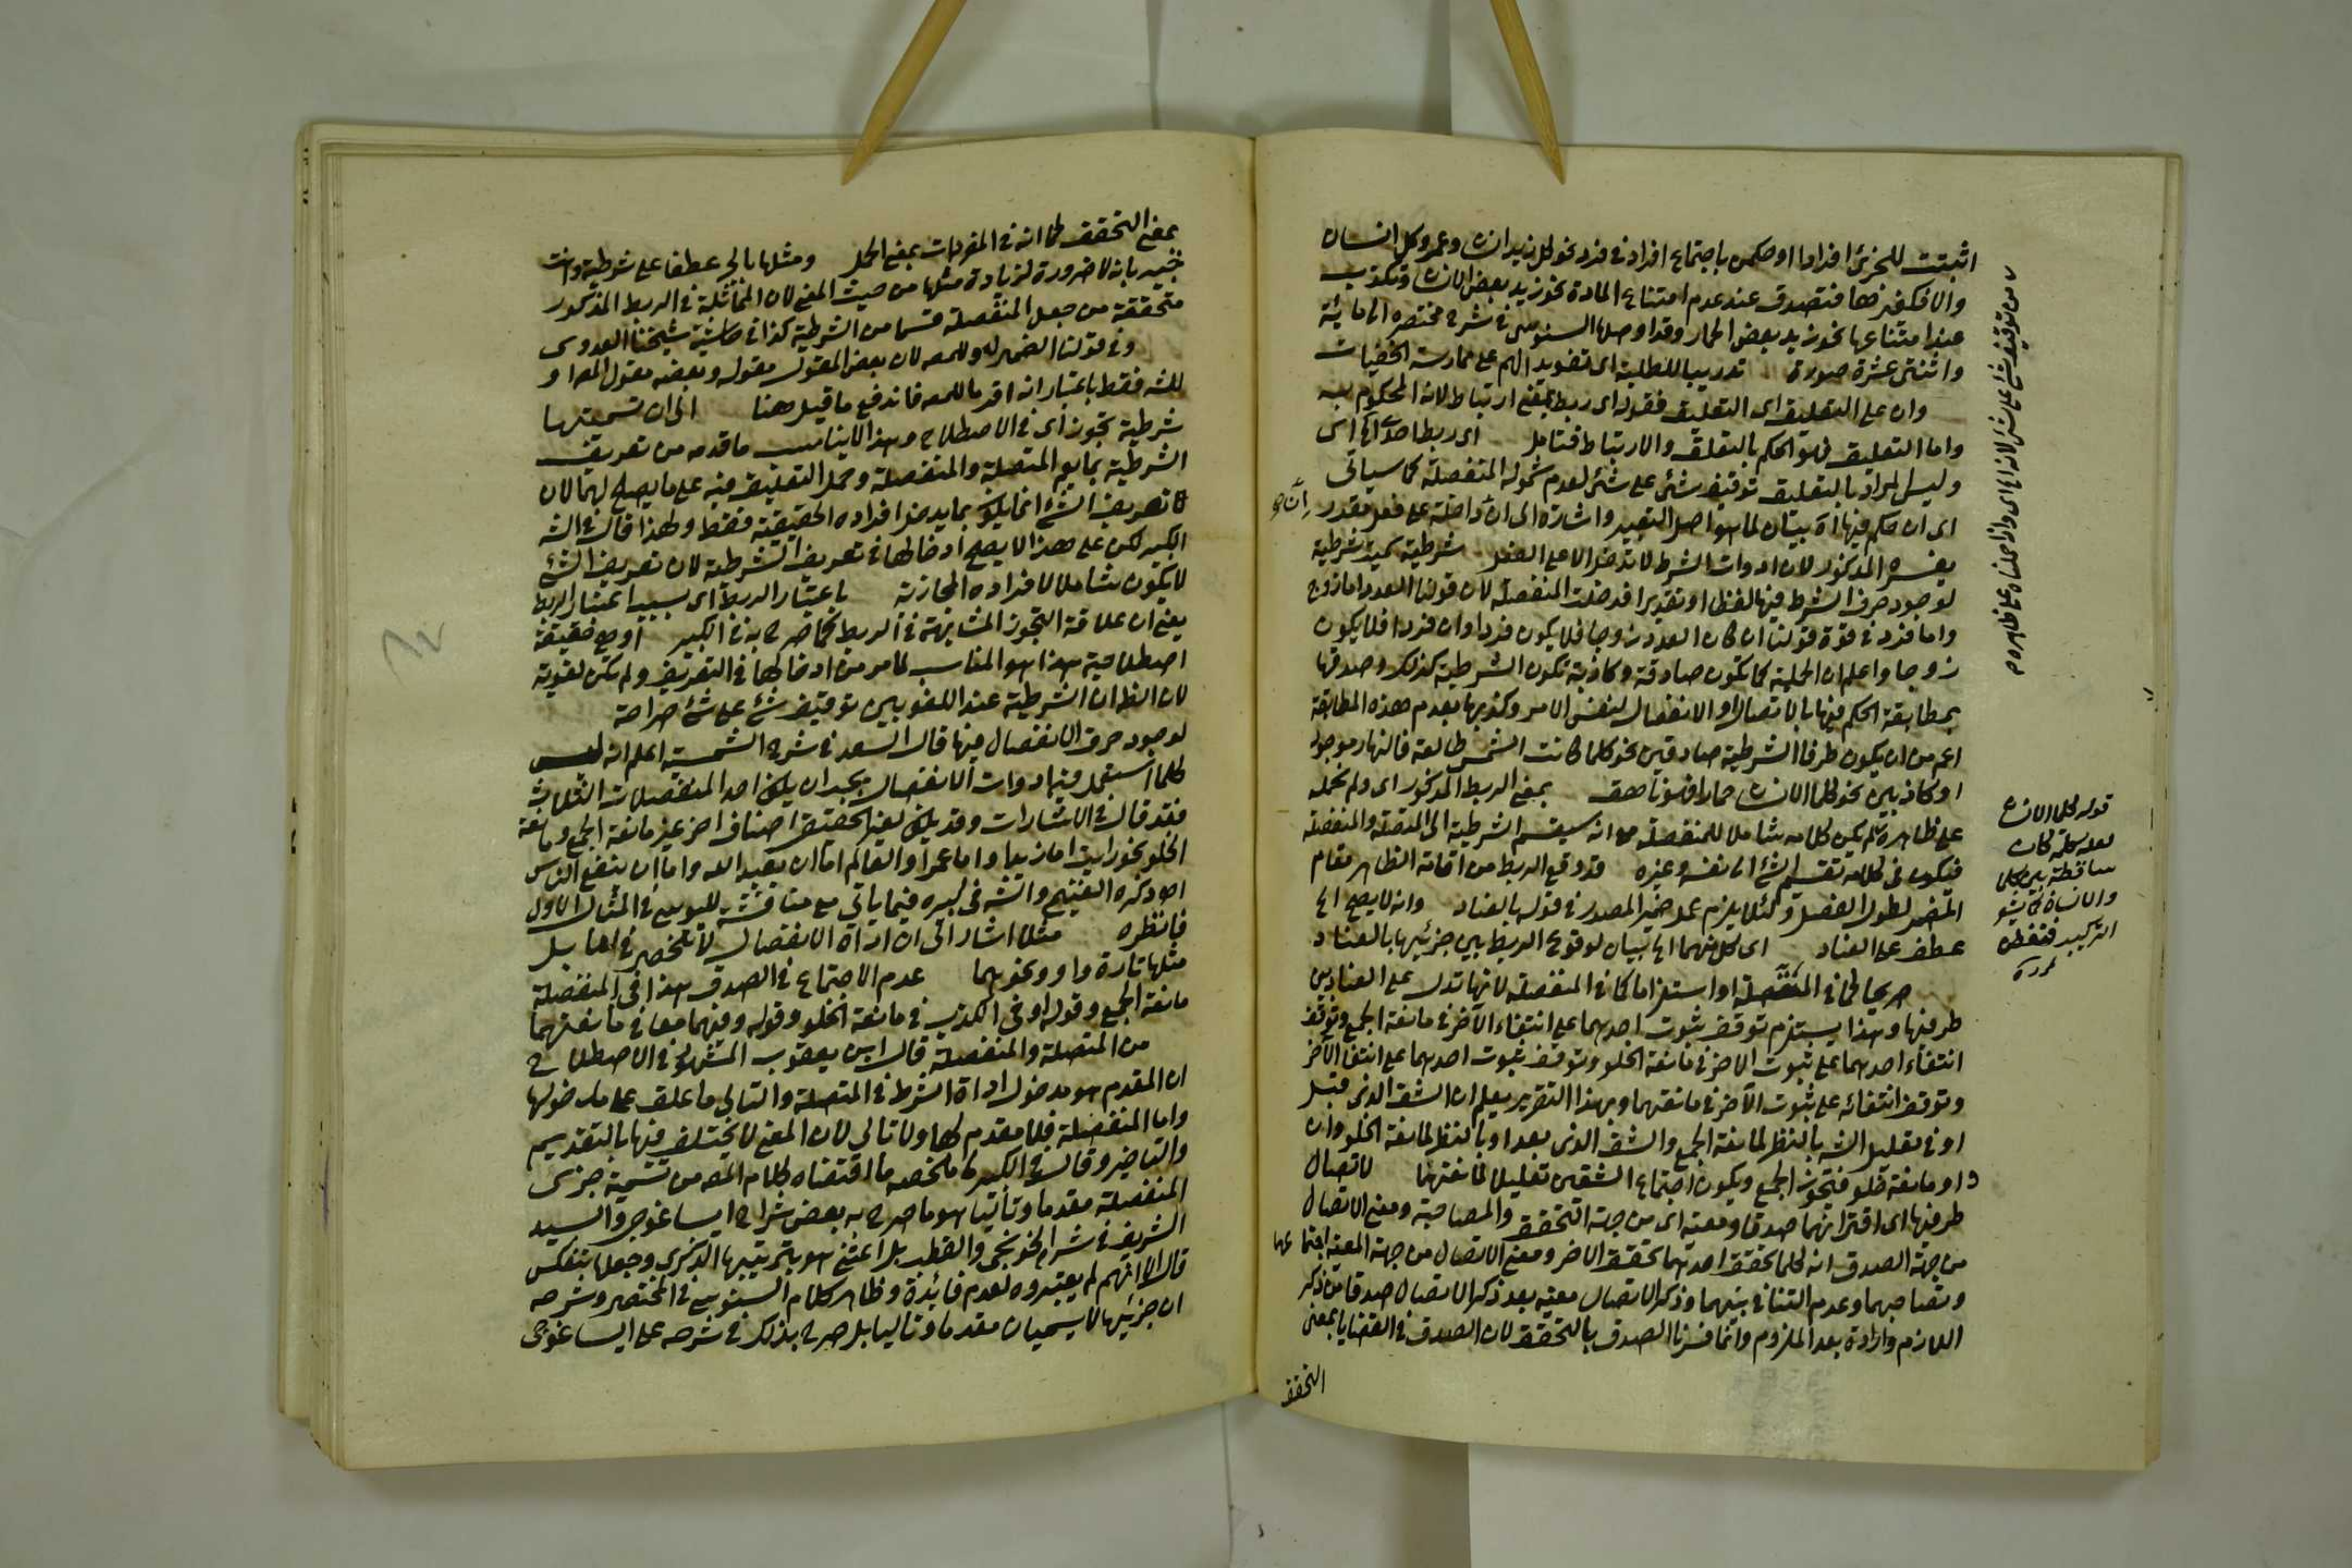 اثبتت للجزئى افرادا او حكمت باجتماع افراد فى فرد نحو كل زيد انسان وعمرو كل انسان
والا فكغيرها فتصدق عند عدم امتناع المادة نحو زيد بعض الانسان وتكذب
عند امتناعها نحو زيد بعض الحمار وقد اوصلها السنوسى فى شرح مختصره الى مائة
واثنتى عشرة صورة تدريبا للطلبة اى تقوية لهم على ممارسة الخفيات
وان على التعليق اى التعليق فقوله اى ربط بمعنى ارتباط لانه المحكوم به
واما التعليق فهو الحكم بالتعلق والارتباط فتامل اى ربطا
وليس المراد بالتعليق توقيف شئ على شئ لعدم شموله المنفصلة كما سياتى
اى ان حكم فيها اه بيان لما هو اصل التعبير واشارة الى ان داخلة على فعل مقدر
يفسره المذكور لان ادوات الشرط لا تدخل الا على الفعل شرطية سميت شرطية
لوجود حرف الشرط فيها لفظا او تقديرا فدخلت المنفصلة لان قولنا العدد اما زوج
واما فرد فى قوة قولنا ان كان العدد زوجا فلا يكون فردا وان فردا فلا يكون
زوجا واعلم ان الحملية كما تكون صادقة وكاذبة تكون الشرطية كذلك وصدقها
بمطابقة الحكم فيها بالاتصال او الانفصال لنفس الامر وكذبها بعدم هذه المطابقة
اعم من ان يكون طرفا الشرطية صادقين نحو كلما كانت الشمس طالعة فالنهار موجود
او كاذبين نحو كلما الانسان حمارا فهو ناهق بمعنى الربط المذكور اى ولم نحمله
على ظاهره لم يكن كلامه شاملا للمنفصلة مع انه سيقسم الشرطية الى المتصلة والمنفصلة
فيكون فى كلامه تقسيم الشئ الى نفسه وغيره قد وقع الربط من اقامة الظاهر مقام
المضمر لطول الفصل ولئلا يلزم عمل ضمير المصدر فى قوله بالعناد وانه لا يصح اى
عطف على العناد اى كل منهما اى بيان لوقوع الربط بين جزئيها بالعناد
صريحا كما فى المتصلة او استلزاما كما فى المنفصلة لانها تدل على العناد بين
طرفيها وهذا يستلزم توقف ثبوت احدهما على انتفاء الآخر فى مانعة الجمع وتوقف
انتفاء احدهما على ثبوت الاخر فى مانعة الخلو وتوقف ثبوت احدهما على انتفاء الآخر
وتوقف انتفائه على ثبوت الآخر فى مانعتهما وبهذا التقرير يعلم ان الشق الذى قبل
او فى تعليل الشه بالنظر لمانعة الجمع والشق الذى بعد او بالنظر لمانعة الخلو وان
او مانعة خلو فتجوز الجمع ويكون اجتماع الشقين تعليلا لمانعتهما لاتصال
طرفيها اى اقترانهما صدقا ومعية اى من جهة التحقق والمصاحبة ومعنى الاتصال
من جهة الصدق انه كلما تحقق احدهما تحقق الاخر ومعنى الاتصال من جهة المعية اجتماعهما
وتصاحبهما وعدم التنافى بينهما وذكر الاتصال معية بعد ذكر الاتصال صدقا من ذكر
اللازم وارادة بعد الملزوم وانما فسرنا الصدق بالتحقق لان الصدق فى القضايا بمعنى
التحقق
من توقيف شئ على شئ لانه اى واذا حملناه على ظاهره
قوله كلما الانسان
لعله كلمة كان
ساقطة بين كلما
والانسان
التركيب
بمعنى التحقق كما انه فى المفردات بمعنى الحمل ومثلها بالجر عطفا على شرطية وانت
خبير بانه لا ضرورة لزيادة مثلها من حيث المعنى لان المماثلة فى الربط المذكور
متحققة من جعل المنفصلة قسما من الشرطية كذا فى حاشية شيخنا العدوى
وفى قولنا الضمير له وللمصه لان بعض المقول مقوله وبعضه مقول المصه او
للشه فقط باعتبار انه اقره للمصه فاندفع ما قيل هنا الى ان تسميتها
شرطية تجوز اى فى الاصطلاح وهذا لا يناسب ما قدمه من تعريف
الشرطية بما يعم المتصلة والمنفصلة وحمل التعليق فيه على ما يصلح لهما لان
تعريف الشئ انما يكون بما يدخل افراده الحقيقية فقط ولهذا قال فى الشه
الكبير لكن على هذا لا يصح ادخالها فى تعريف الشرطية لان تعريف الشئ
لا يكون شاملا لافراده المجازية باعتبار الربط اى بسبب اعتبار الربط
يعنى ان علاقة التجوز المشابهة فى الربط كما صرح به فى الكبير او مع حقيقة
اصطلاحية هذا هو المناسب لما مر من ادخالها فى التعريف ولم تكن لغوية
لان الظه ان الشرطية عند اللغويين توقيف شئ على شئ صراحة
لوجود حرف الانفصال فيها قال السعد فى شرح الشمسية اعلم انه ليس
كلما استعمل فيه ادوات الانفصال يجب ان يكون احد المنفصلات الثلاث
فقد قال فى الاشارات وقد يكون لغير الحقيقى اصناف اخر غير مانعة الجمع ومانعة
الخلو نحو رايت اما زيدا واما عمرا والعالم اما ان يعبد الله واما ان ينفع الناس
اه وذكره الغنيمى والشه فى كبيره فيما ياتى مع مناقشة لليوسى فى المثال الاول
فانظره مثلا اشار الى ان اداة الانفصال لا تنحصر فى اما بل
مثلها تارة واو ونحوهما عدم الاجتماع فى الصدق هذا فى المنفصلة
مانعة الجمع وقوله او فى الكذب فى مانعة الخلو وقوله وفيهما معا فى مانعتهما
من المتصلة والمنفصلة قال ابن يعقوب المشهور فى الاصطلاح
ان المقدم هو مدخول اداة الشرط فى المتصلة والتالى ما علق على مدخولها
واما المنفصلة فلا مقدم لها ولا تالى لان المعنى لا يختلف فيها بالتقديم
والتاخير وقال فى الكبير ما ملخصه ما اقتضاه كلام المصه من تسمية جزئى
المنفصلة مقدما وتاليا هو ما صرح به بعض شراح ايساغوجى والسيد
الشريف فى شرح الخونجى والقطب بل اعتنى هو بترتيبها الذكرى وجعلها تنعكس
قال الا انهم لم يعتبروه لعدم فائدة وظاهر كلام السنوسى فى المختصر وشرحه
ان جزئيها لا يسميان مقدما وتاليا بل صرح بذلك فى شرحه على ايساغوجى